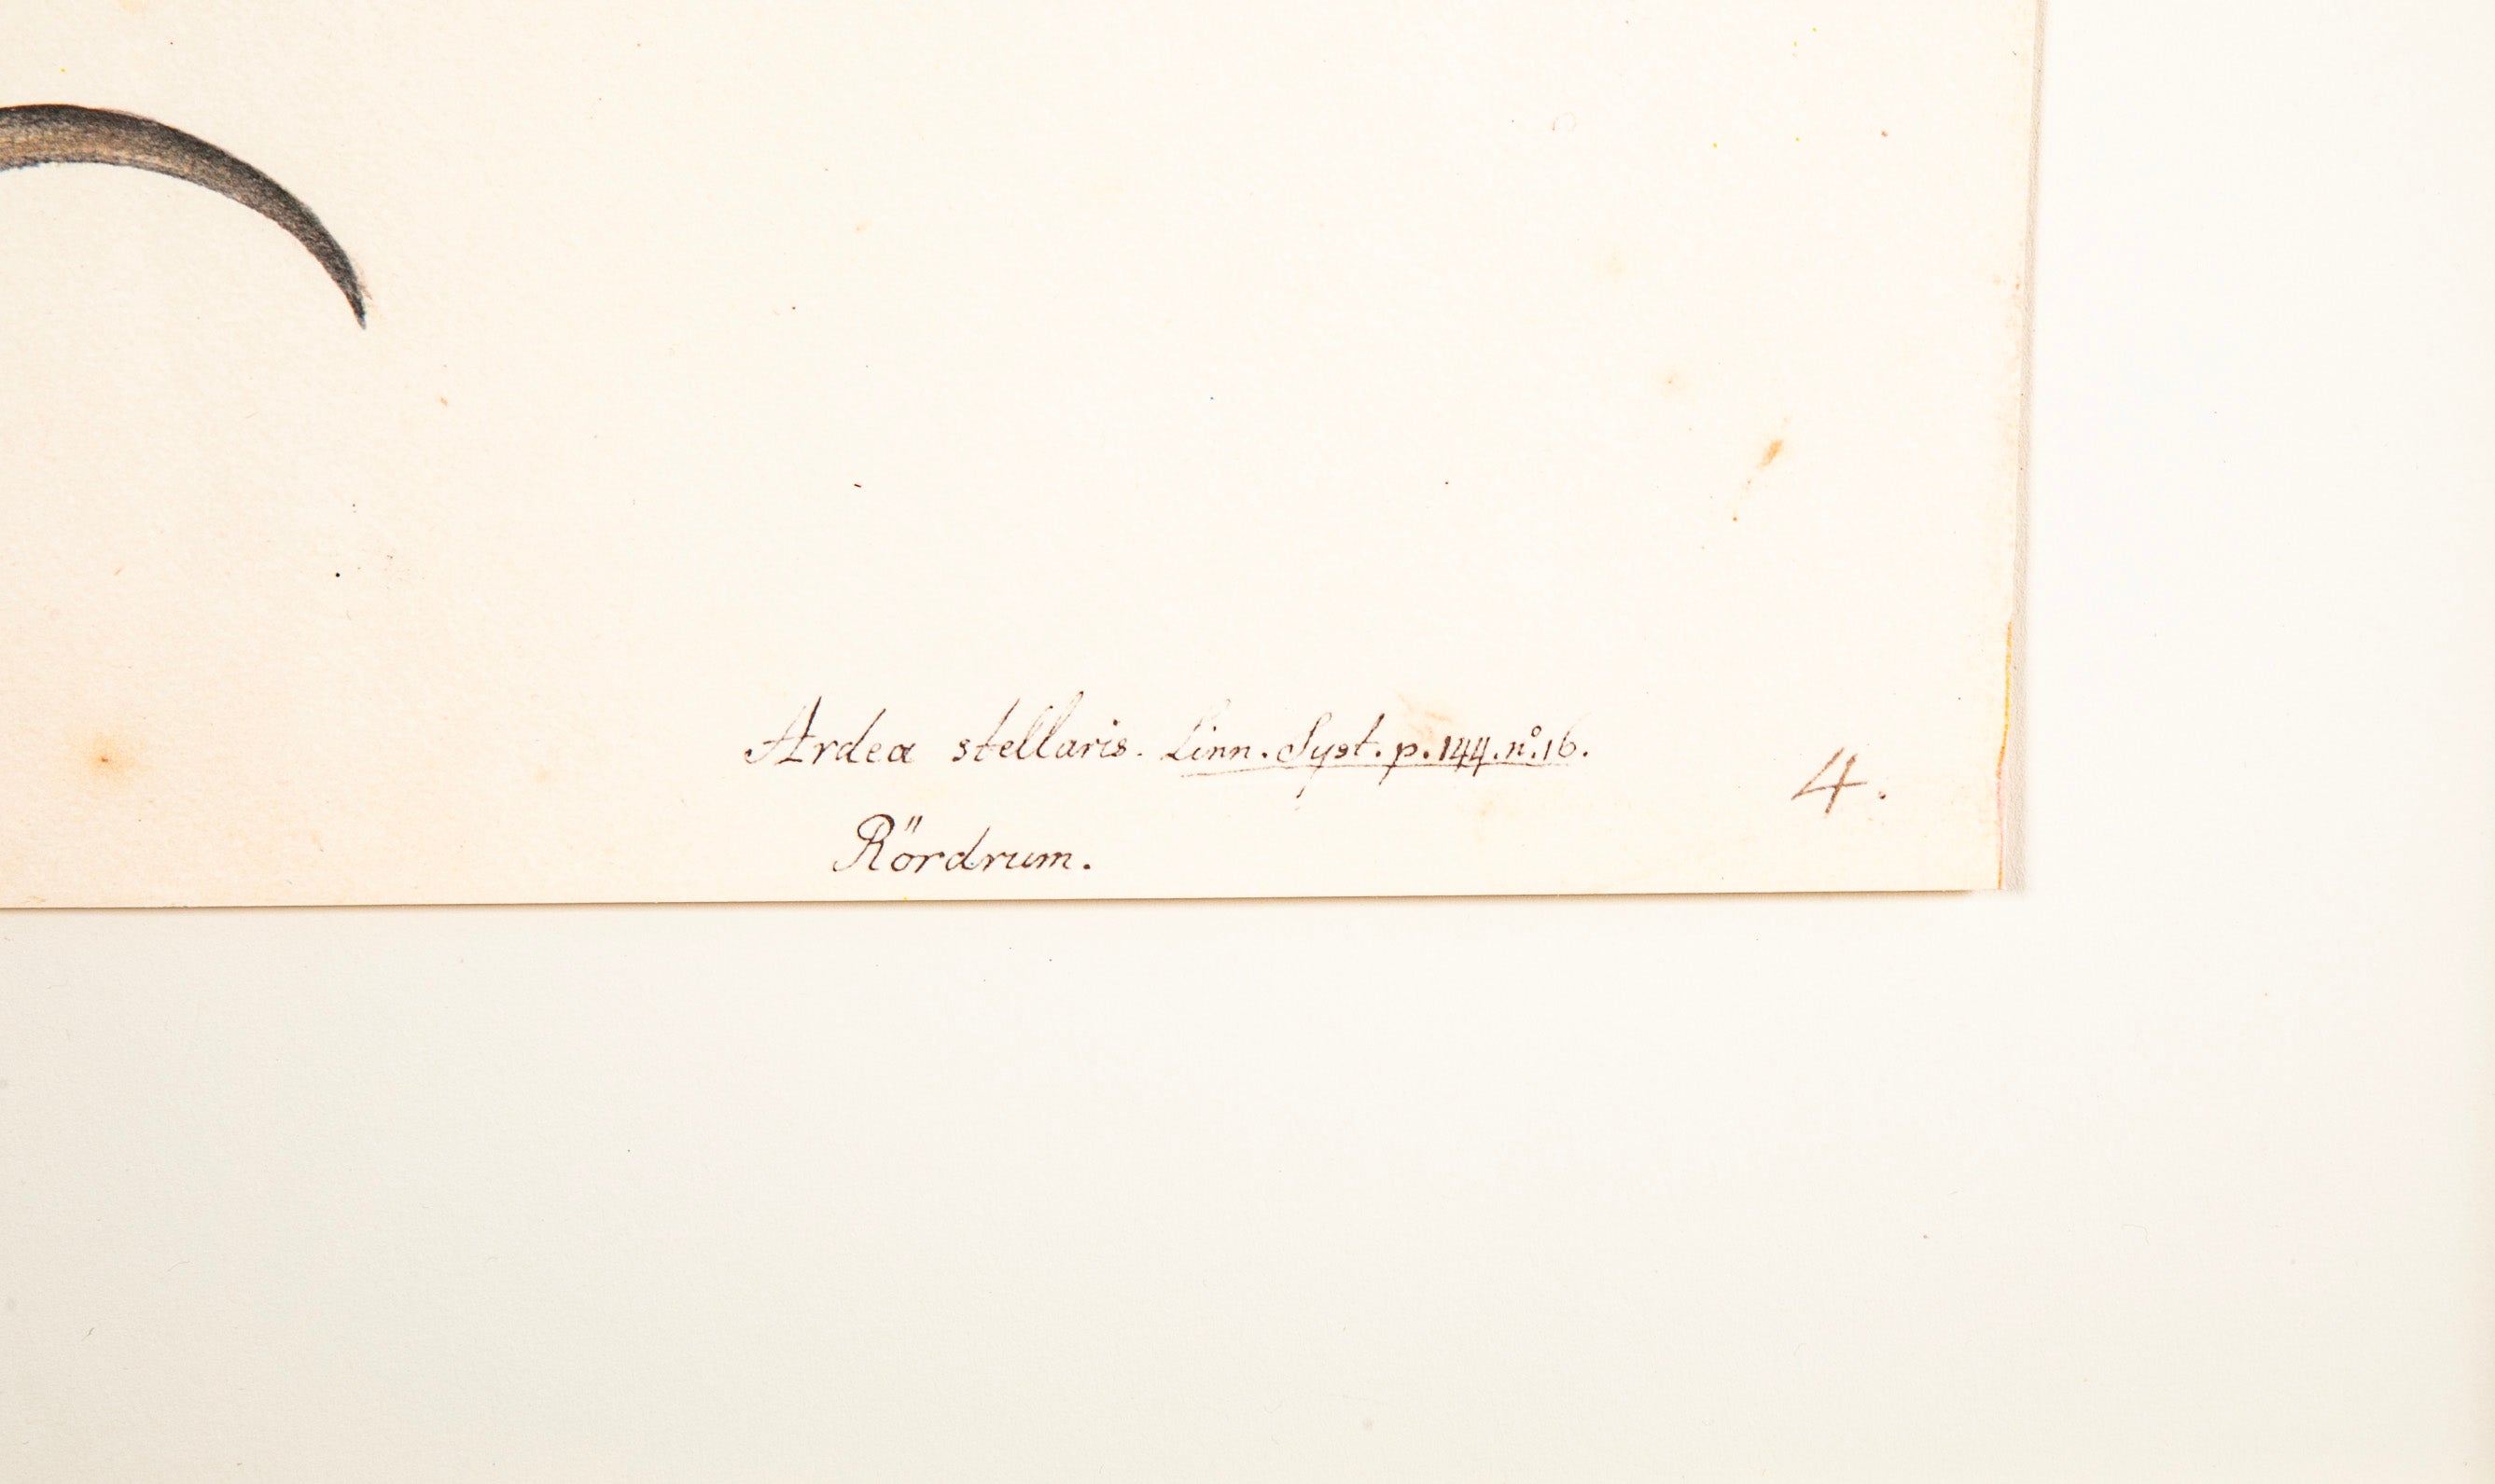 Ardea stellaris. Linn. Syst. p. 144. nº. 16.
Rördrum.
4.